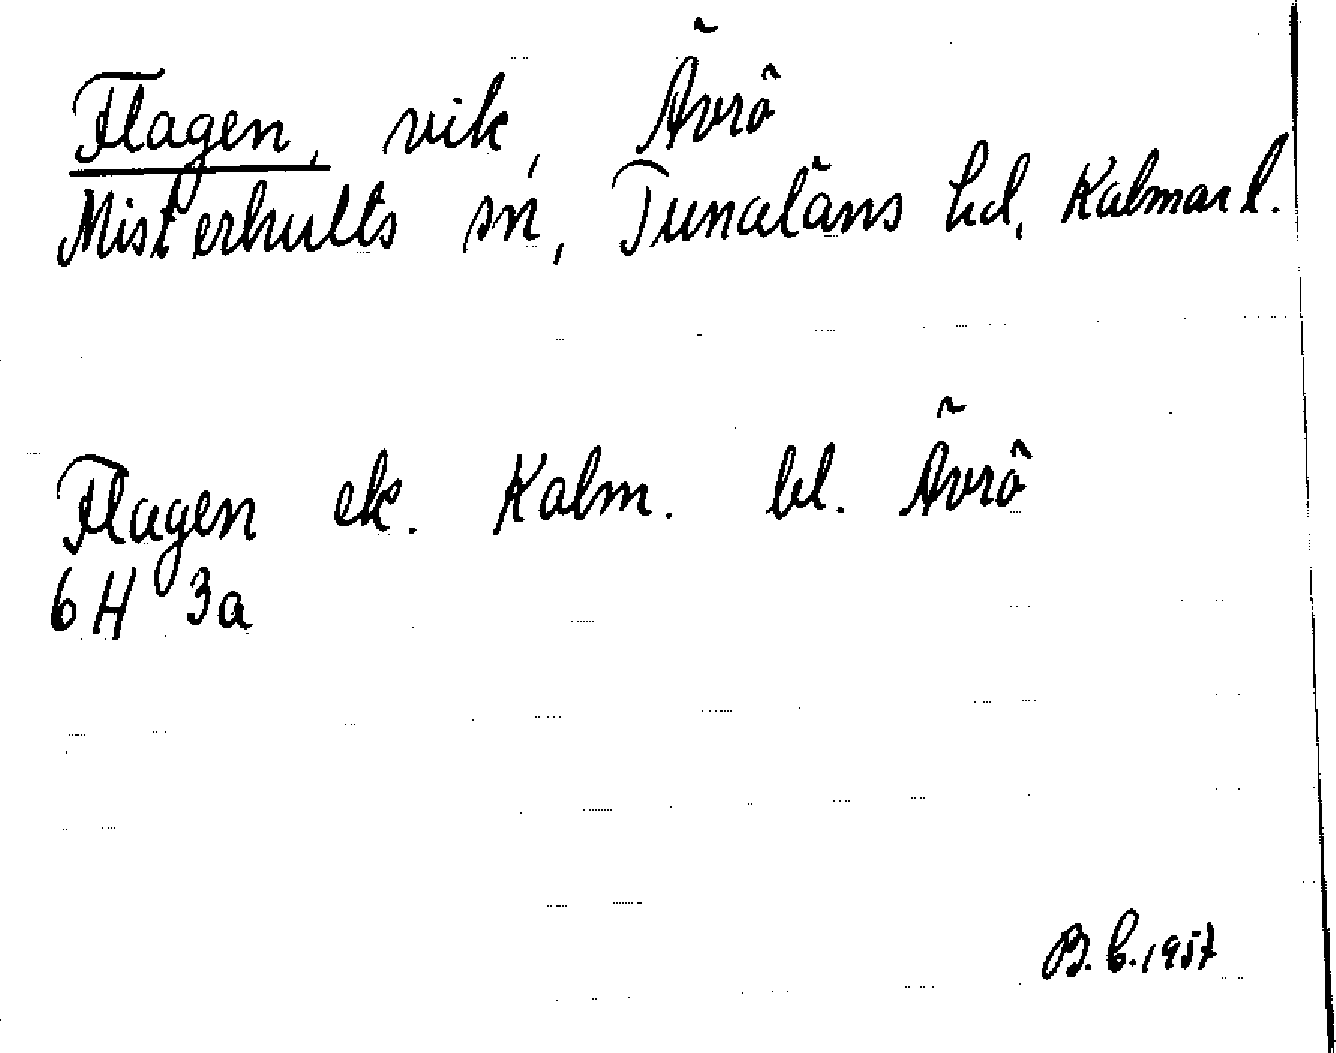 Flagen, vik, Ävrö
Misterhults sn, Tunaläns hd, Kalmar l.
Flagen ek. Kalm. bl. Ävrö
6H 3a
B. b. 1957